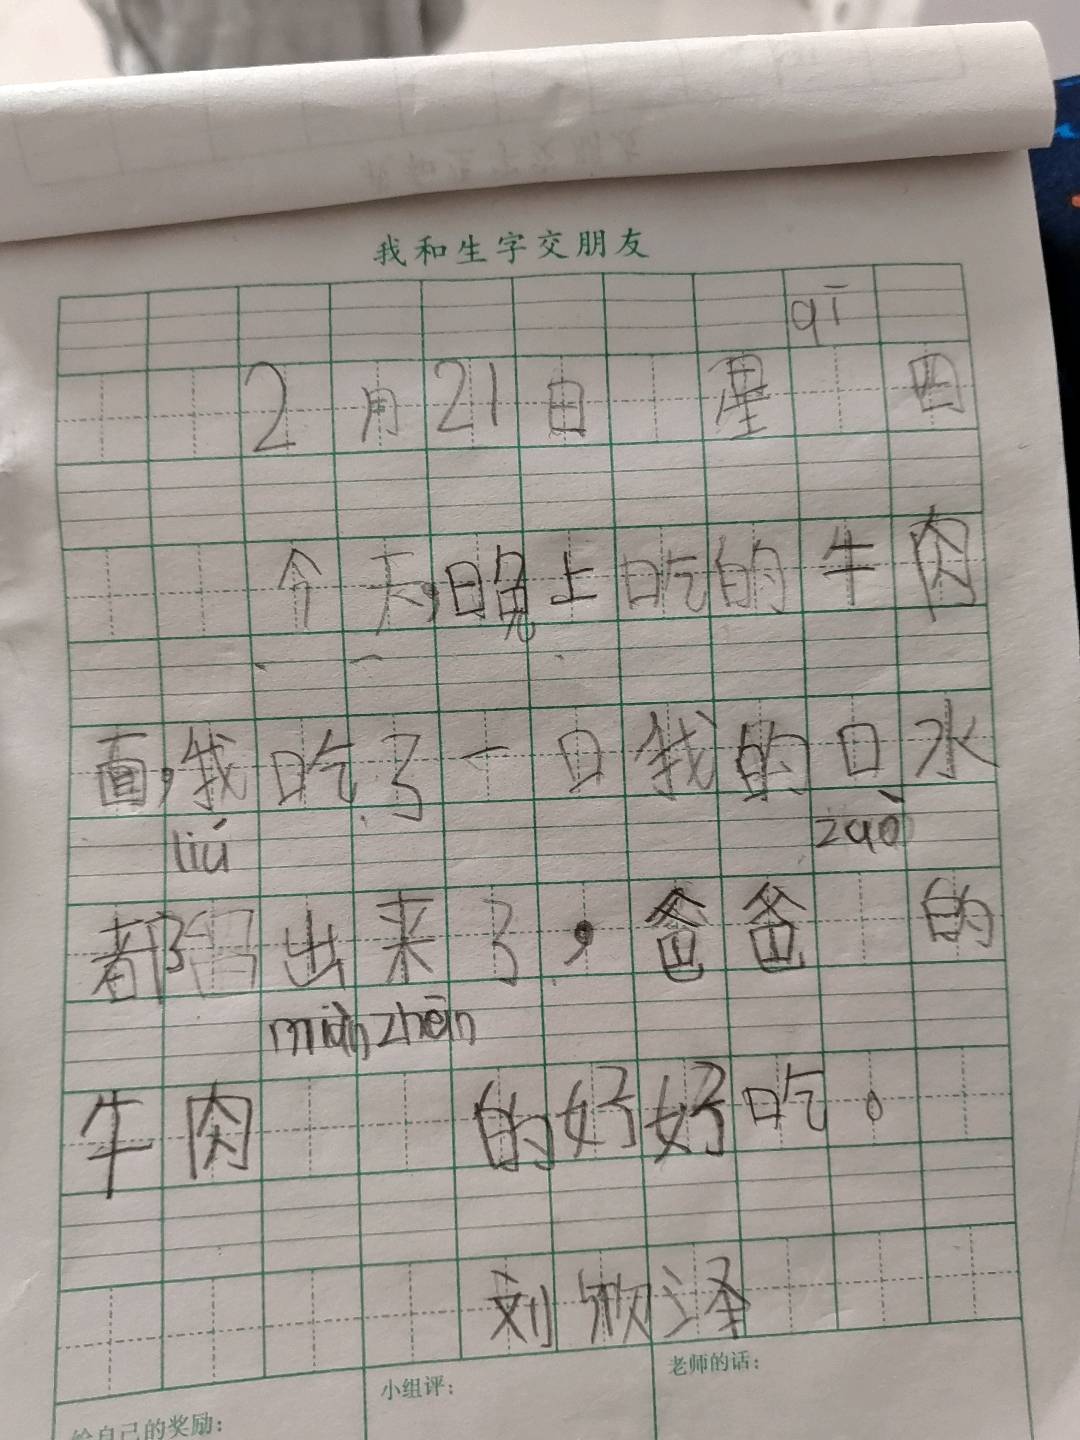 我和生字交朋友
qī
2月21日 星 四
今天,晚上吃的牛肉
面,我吃了一口我的口水
liú zuò
都留出来了,爸爸 的
miàn zhēn
牛肉 的好好吃。
刘欣泽
给自己的奖励:
小组评:
老师的话: